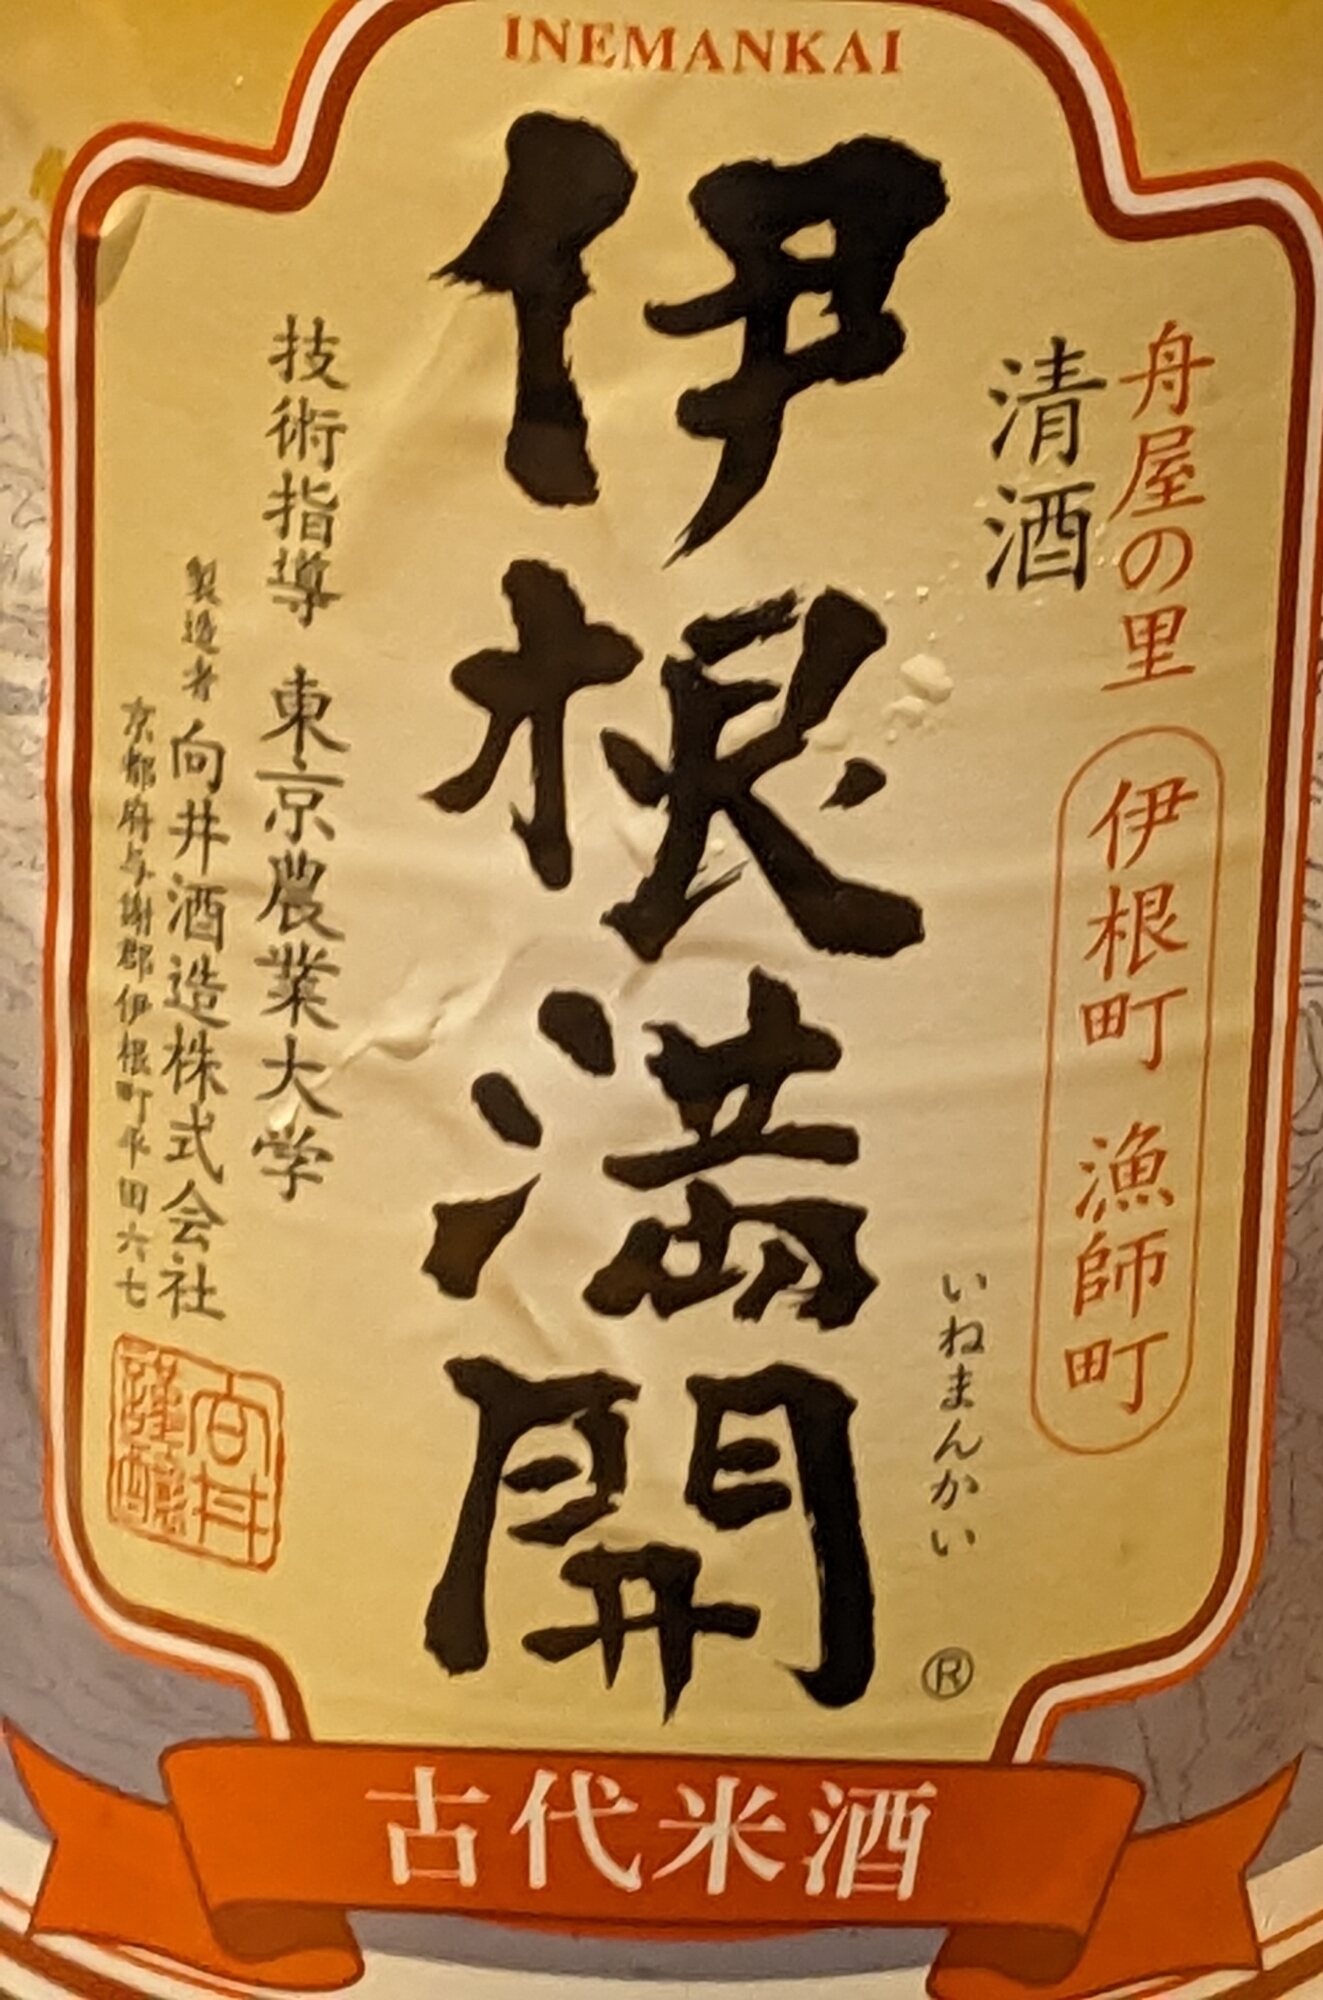 INEMANKAI
舟屋の里 伊根町 漁師町
清酒
いねまんかい
伊根満開
®
技術指導 東京農業大学
製造者 向井酒造株式会社
京都府与謝郡伊根町平田六七
向井
謹醸
古代米酒